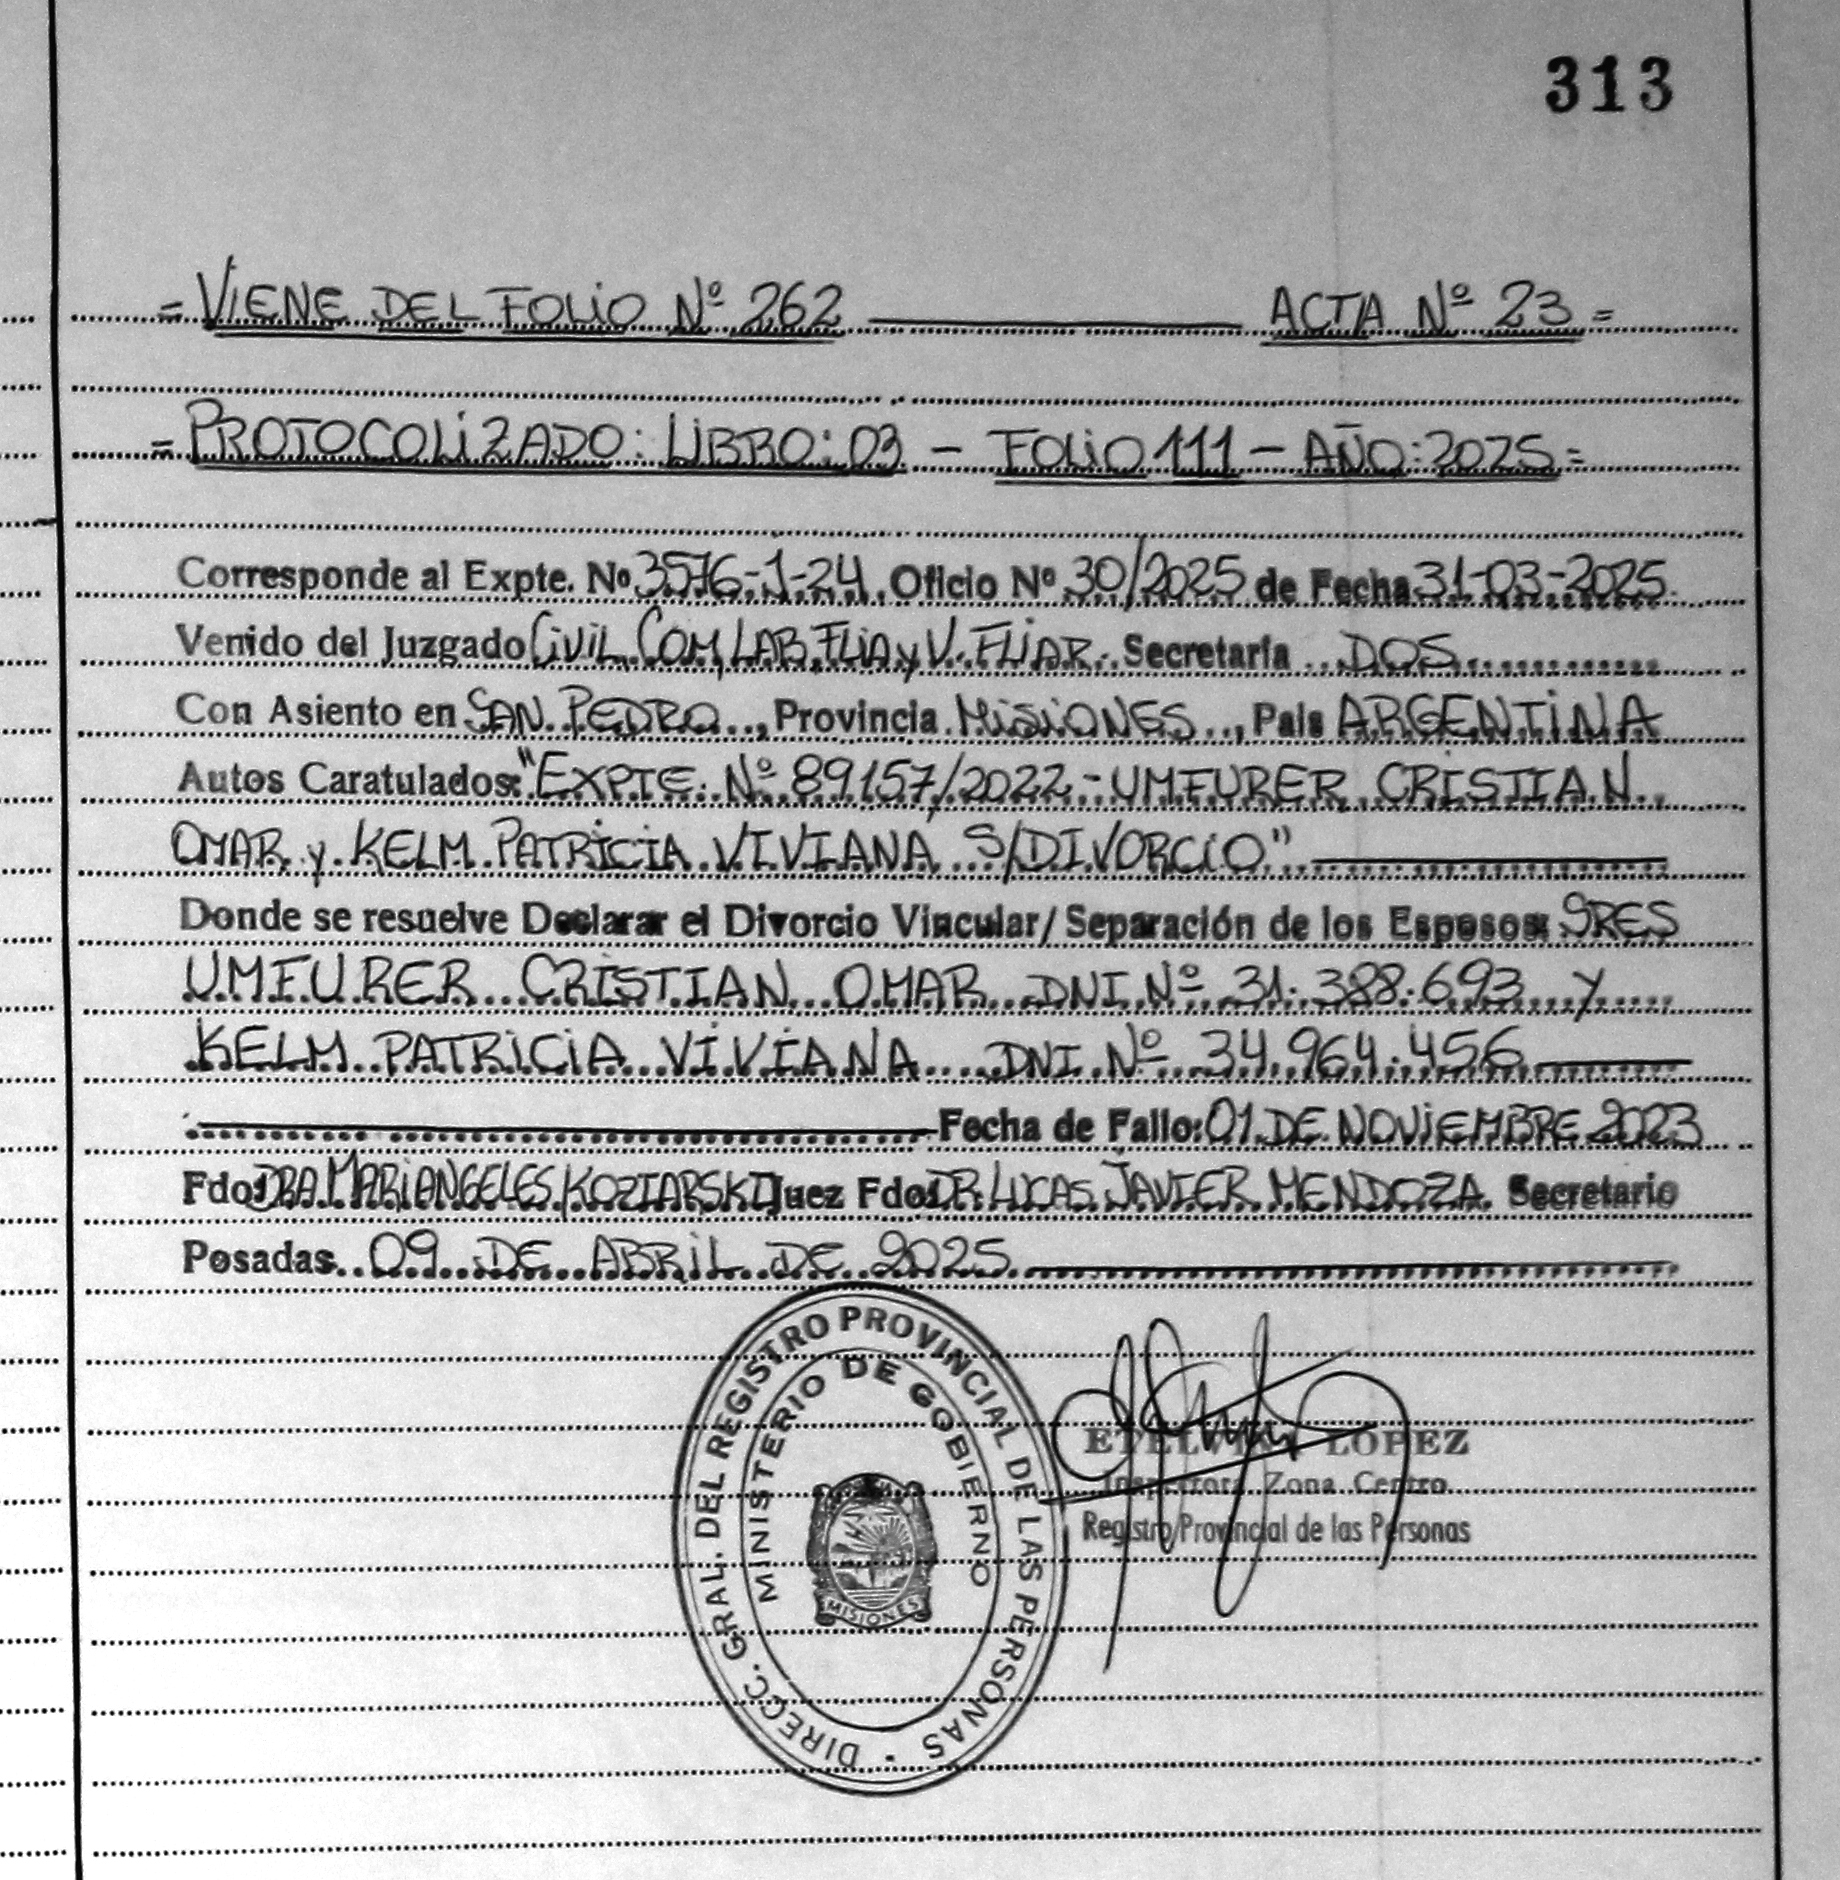 313
= VIENE DEL FOLIO Nº 262 ACTA Nº 23 =
= PROTOCOLIZADO: LIBRO: 03 - FOLIO 111 - AÑO: 2025 =
Corresponde al Expte. Nº 3576-1-24, Oficio Nº 30/2025 de Fecha 31-03-2025.
Venido del Juzgado CIVIL, COM, LAB, FLIA y V. FLIAR. Secretaría DOS
Con Asiento en SAN PEDRO, Provincia MISIONES, País ARGENTINA
Autos Caratulados: "EXPTE. Nº 89157/2022 - UMFURER CRISTIAN
OMAR y KELM PATRICIA VIVIANA S/DIVORCIO"
Donde se resuelve Declarar el Divorcio Vincular/ Separación de los Esposos: SRES
UMFURER CRISTIAN OMAR DNI Nº 31.388.693 y
KELM PATRICIA VIVIANA DNI Nº 34.964.456
Fecha de Fallo: 01 DE NOVIEMBRE 2023
Fdo: DRA. MARIANGELES KOZIARSKI Juez Fdo: DR. LUCAS JAVIER MENDOZA. Secretario
Posadas 09 DE ABRIL DE 2025
DIRECC. GRAL. DEL REGISTRO PROVINCIAL DE LAS PERSONAS
MINISTERIO DE GOBIERNO
MISIONES
ETELVINA LOPEZ
Inspectora Zona Centro
Registro Provincial de las Personas